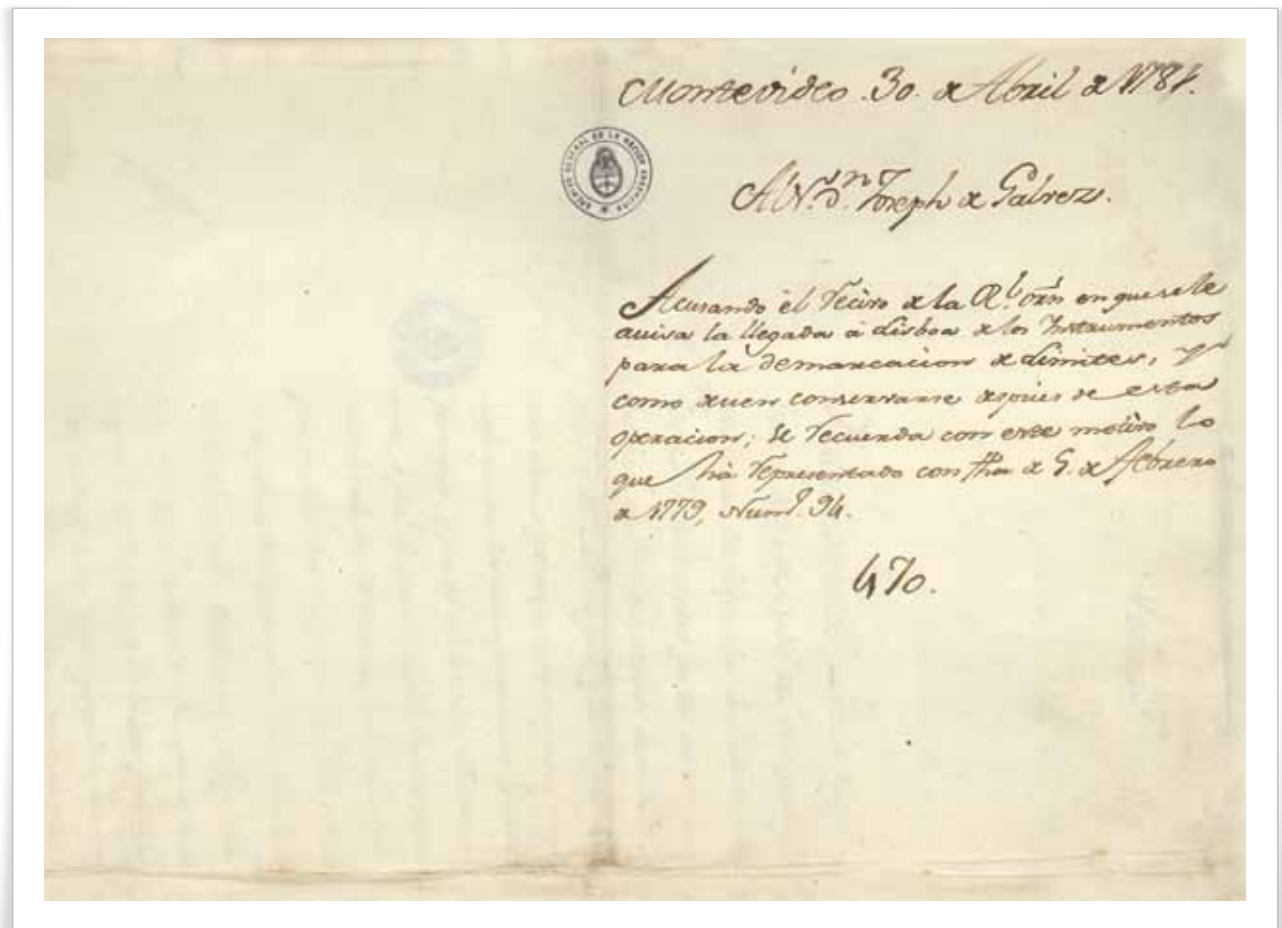 Montevideo .30. de Abril de 1781.
ARCHIVO GENERAL DE LA NACION ARGENTINA
Al S.r D.n Joseph de Galvez.
Acusando èl recivo de la R.l orñ en que se le
avisa la llegada à Lisboa de los Instrumentos
para la demarcacion de Limites, y
como deven conservarse despues de esta
operacion; se recuerda con este motivo lo
que hà representado con fha de 5. de Febrero
de 1779, Num.o 94.
470.